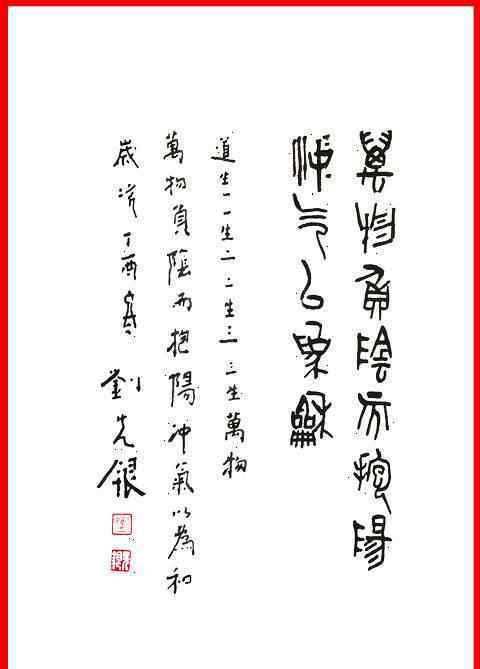 萬物負陰而抱陽
沖气以為龢
道生一一生二二生三三生萬物
萬物負陰而抱陽冲氣以為和
歲次丁酉 劉先銀